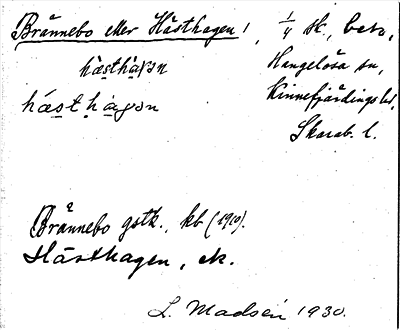 Brännebo eller Hästhagen, 1/4 sk., bero,
Hangelösa sn,
Kinnefjärdings hd,
Skarab. l.
hä̀sthàgən
hásthàgən
Brännebo gstk., kb (1910).
Hästhagen, ek.
L. Madsén 1930.